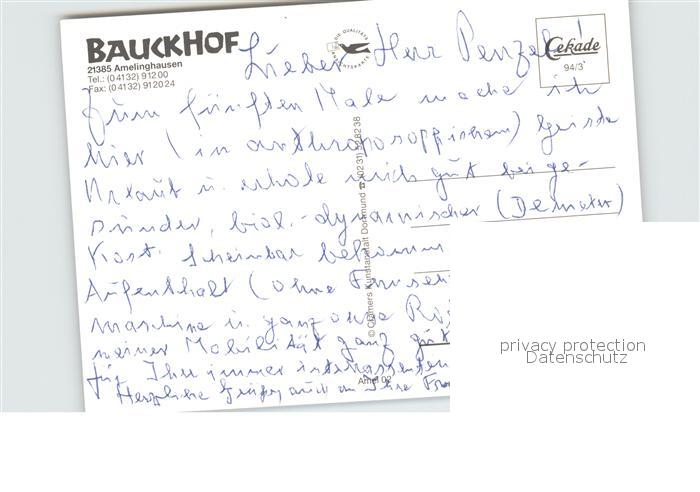 BAUCKHOF
21385 Amelinghausen
Tel.: (04132) 91200
Fax: (04132) 912024
Cekade
94/3
Lieber Herr Penzel!
Zum fünften Male mache ich
hier (in anthroposoffischem) Geiste
Urlaub u. erhole mich gut bei ge-
sunder, biol.-dynamischer (Demeter)
Kost. Scheinbar bekommt
Aufenthalt (ohne
maschine u. ganz ohne
meiner Mobilität ganz gut
für Ihre immer interessanten
Herzliche Grüße auch an Ihre
© Cramers Kunstanstalt Dortmund
Amel 02
privacy protection
Datenschutz